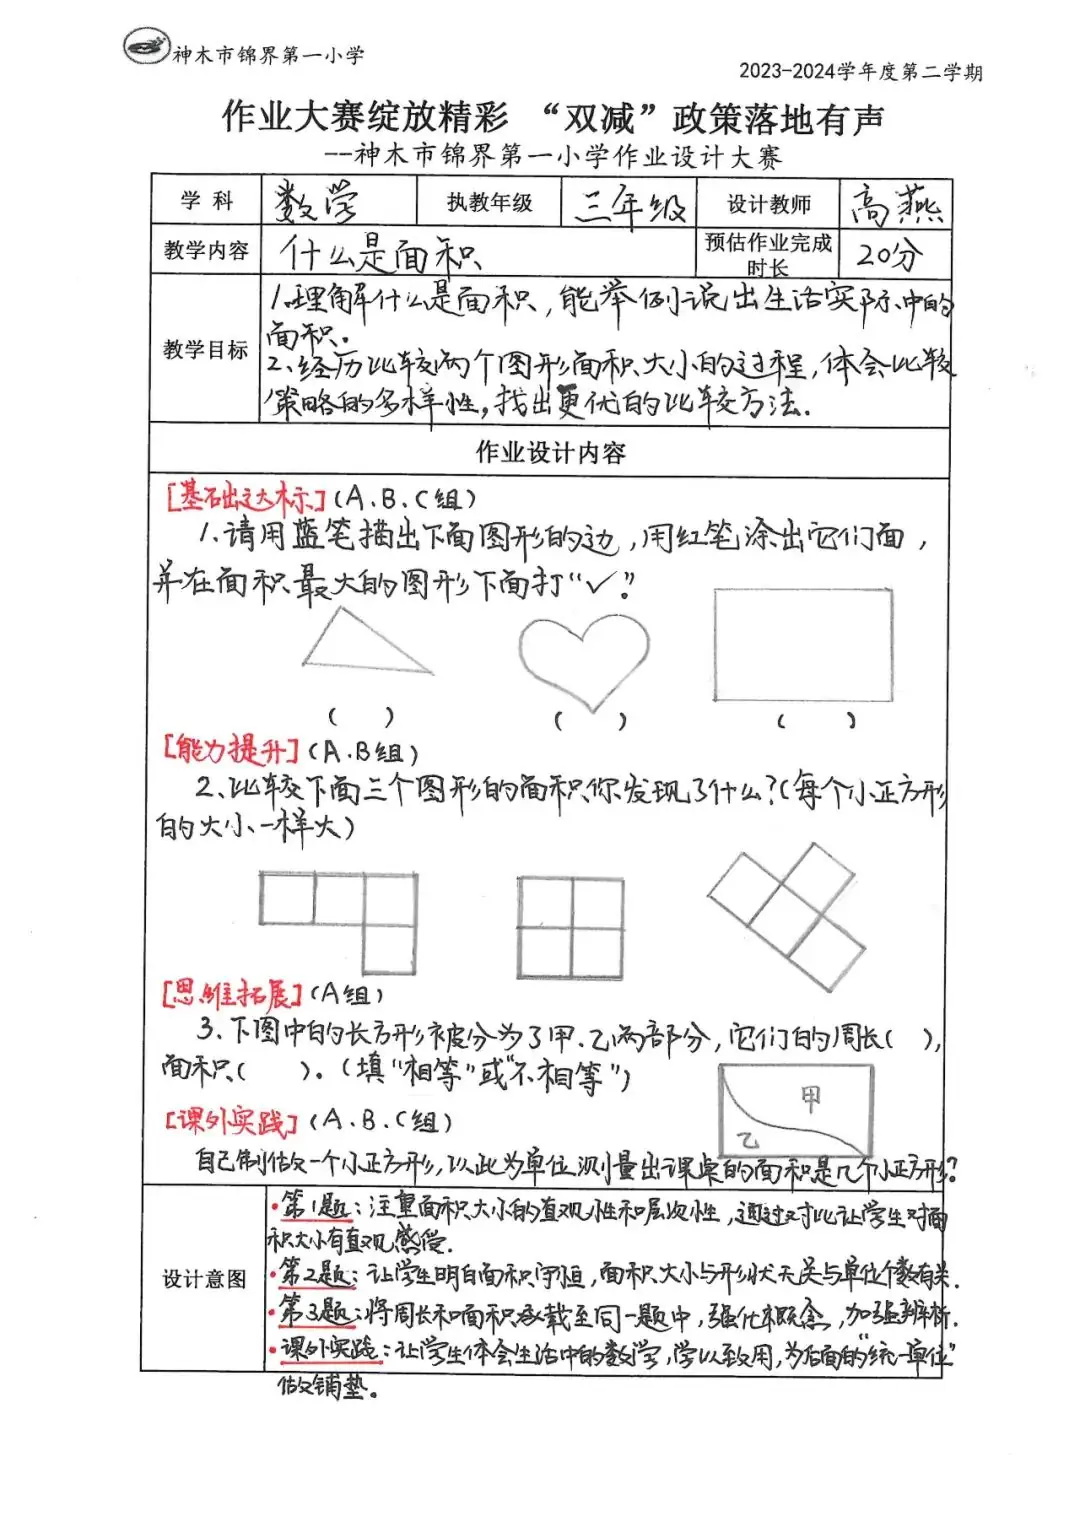 神木市锦界第一小学
2023-2024学年度第二学期
作业大赛绽放精彩 “双减”政策落地有声
--神木市锦界第一小学作业设计大赛
学 科 数学 执教年级 三年级 设计教师 高燕
教学内容 什么是面积 预估作业完成时长 20分
教学目标
1.理解什么是面积,能举例说出生活实际中的
面积。
2、经历比较两个图形面积大小的过程,体会比较
策略的多样性,找出更优的比较方法.
作业设计内容
[基础达标](A.B.C组)
1.请用蓝笔描出下面图形的边,用红笔涂出它们面,
并在面积最大的图形下面打“✓”?
( ) ( ) ( )
[能力提升](A.B组)
2、比较下面三个图形的面积,你发现了什么?(每个小正方形
的大小一样大)
[思维拓展](A组)
3、下图中的长方形被分为了甲、乙两部分,它们的周长( ),
面积( )。(填“相等”或“不相等”)
甲
乙
[课外实践](A.B.C组)
自己制做一个小正方形,以此为单位,测量出课桌的面积是几个小正方形?
设计意图
·第1题:注重面积大小的直观性和层次性,通过对比让学生对面
积大小有直观感受.
·第2题:让学生明白面积守恒,面积大小与形状无关与单位个数有关.
·第3题:将周长和面积承载至同一题中,强化概念,加强辨析.
·课外实践:让学生体会生活中的数学,学以致用,为后面的“统一单位”
做铺垫。